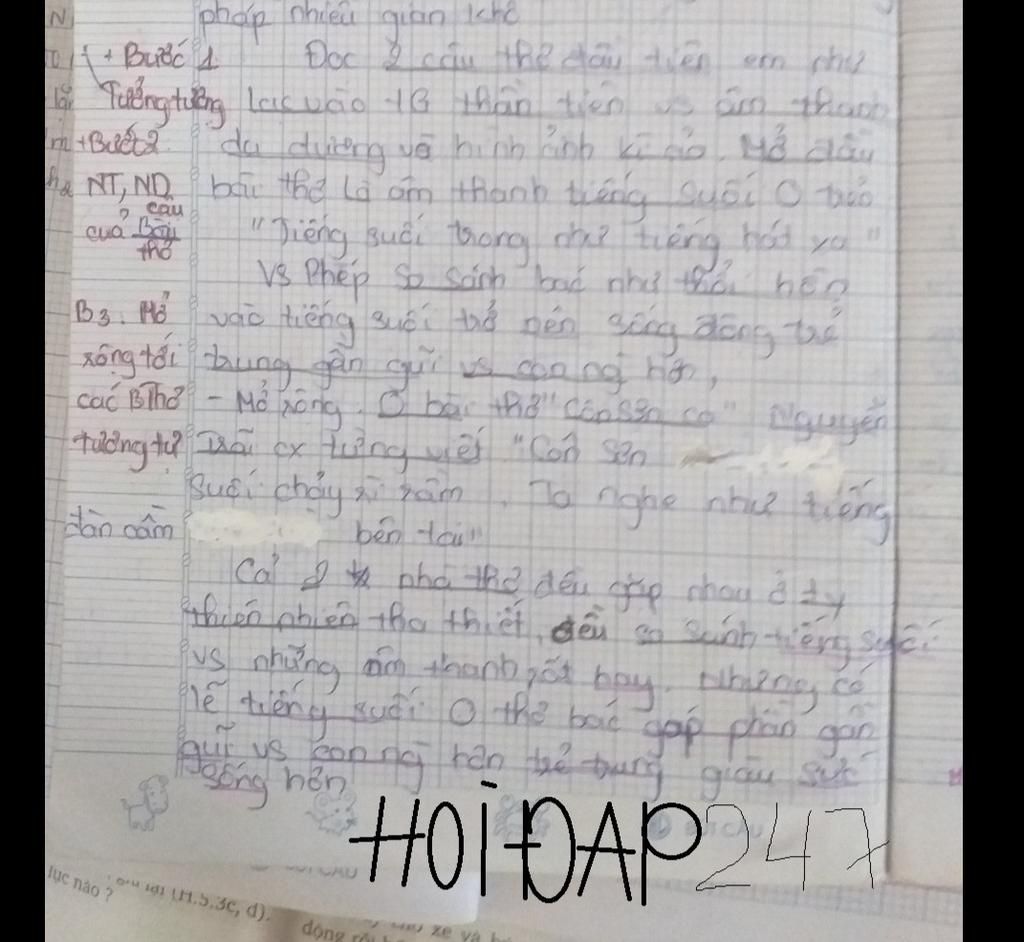 pháp nhiều gian khổ
+ Bước 1 Đọc 2 câu thơ đầu tiên em như
Tưởng tượng lạc vào TG thần tiên vs âm thanh
+ Bước 2. du dương và hình ảnh kì ảo. Mở đầu
NT, ND bài thơ là âm thanh tiếng suối
câu
của Bài "Tiếng suối trong như tiếng hát xa"
thơ
Vs Phép so sánh bác như thổi hồn
B3. Mở vào tiếng suối trở nên sống động trẻ
rộng tới trung gần gũi vs con ng hơn,
các BThơ - Mở rộng. O bài thơ "Côn Sơn ca" Nguyễn
tương tự Trãi cx từng viết "Côn Sơn
suối chảy rì rầm. Ta nghe như tiếng
đàn cầm bên tai"
Cả 2 nhà thơ đều gặp nhau ở ty
thiên nhiên tha thiết, đều so sánh tiếng suối
vs những âm thanh rất hay. Nhưng có
lẽ tiếng suối O thơ bác góp phần gần
gũi vs con ng hơn trẻ trung giàu sức
sống hơn
HOIĐAP247
lục nào? (H.5.3c, d).
xe và